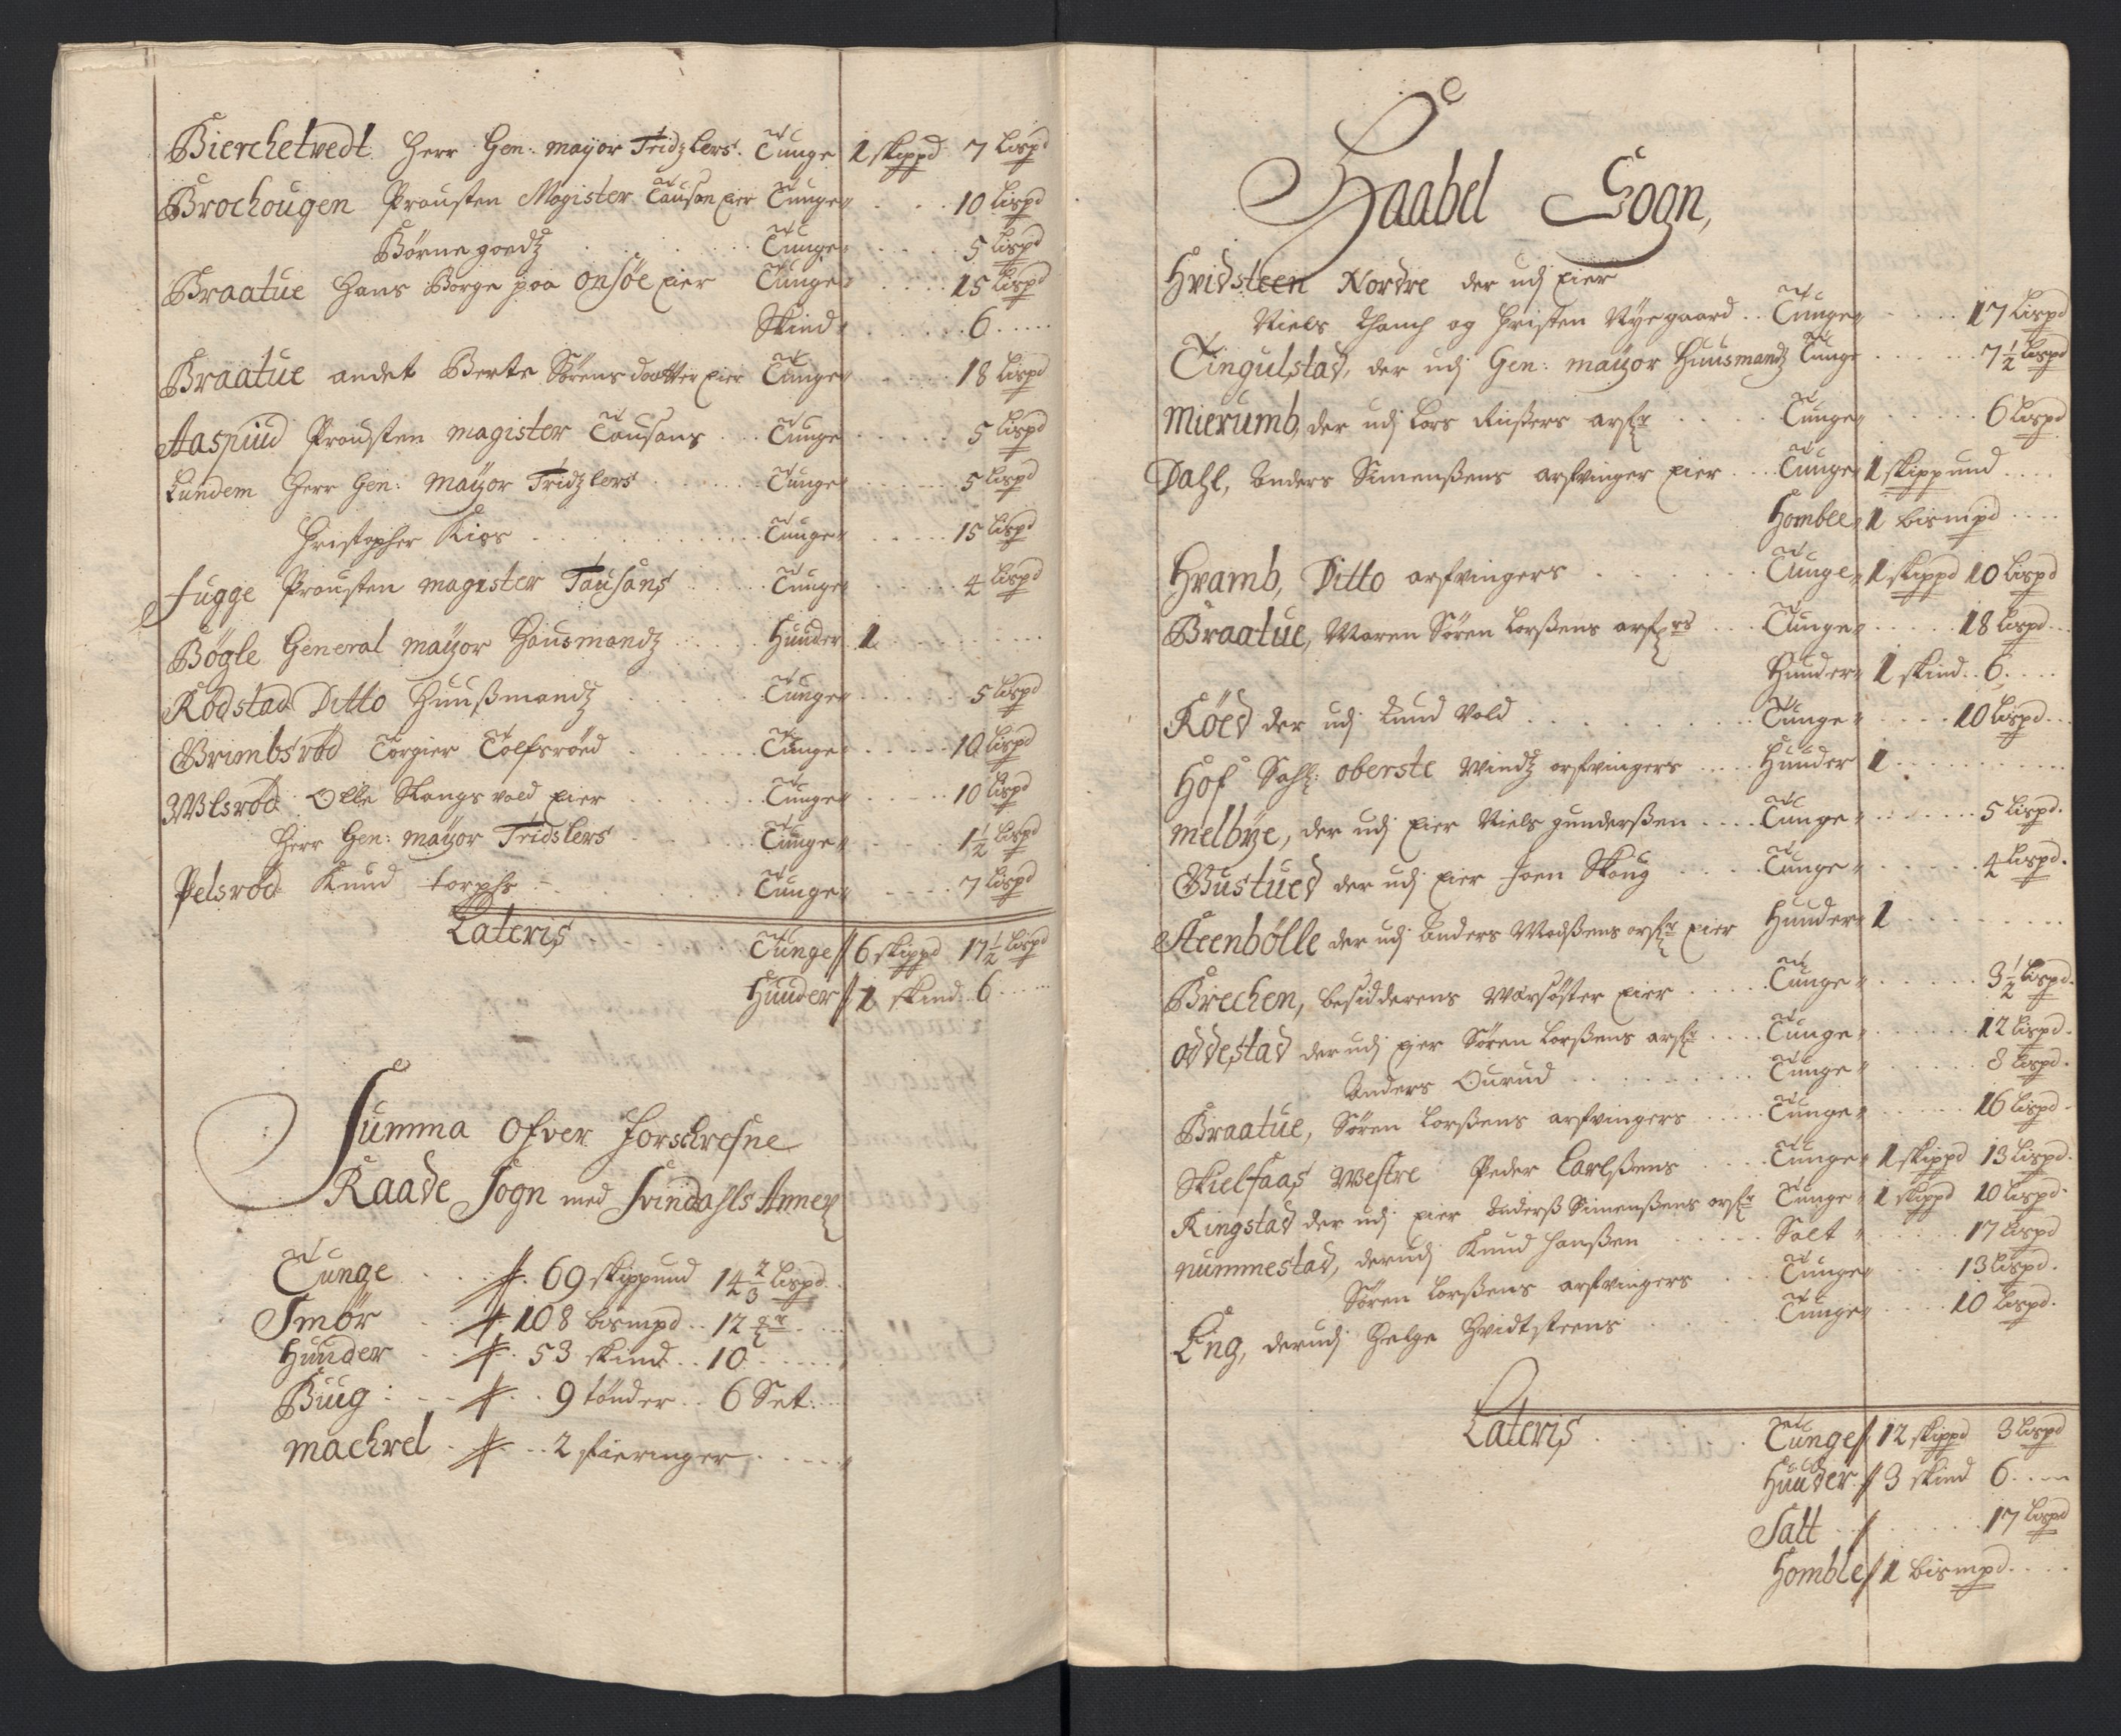 Bierchetvedt Herr Gen: mayor Tridzlers. Tunge 1 skippd 7 Lispd
Brochougen Prousten Magister Tausan eier Tunge 10 Lispd
Børnegoedtz Tunge 5 Lispd
Braatue Hans Borge paa Onsøe eier Tunge 15 Lispd
Skind 6
Braatue andet Berte Sørensdaatter eier Tunge 18 Lispd
Aaspuud Prousten magister Tausans Tunge 5 Lispd
Lundem Herr Gen: Mayor Tridzlers Tunge 5 Lispd
Christopher Kios Tunge 15 Lispd
Fugge Prousten magister Tausans Tunge 4 Lispd
Bøgle General mayor Hausmandz Huuder 1
Rødstad Ditto Huußmandz Tunge 5 Lispd
Grimbsrød Torgier Tolfsrøed Tunge 10 Lispd
Wlsrød Olle Skougs vold eier Tunge 10 Lispd
Herr Gen: mayor Tridslers Tunge 1½ Lispd
Pelsrød Knud torphs Tunge 7 Lispd
Lateris Tunge // 6 skippd 17½ Lispd
Huuder // 1 skind 6
Summa Ofver Forschrefne
Raade Sogn med Svindahls Annex
Tunge 69 skippund 14 2/3 Lispd
Smør 108 bismpd 12
Huuder 53 skind 10
Biug 9 tønder 6 Set:
machrel 2 fieringer
Haabel Sogn,
Hvidsteen Nordre der udj eier
Niels Chanch og Christen Nygaard Tunge 17 Lispd
Tingulstad, der udj Gen: mayor Huusmandz Tunge 7½ Lispd
Mierumb, der udj Lars Rißers arf: Tunge 6 Lispd
Dahl, Anders Simenßens arfvinger eier Tunge 1 skippund
Homble 1 bismpd
Hvamb, Ditto arfvingers Tunge 1 skippd 10 Lispd
Braatue, Maren Søren Lorßens arf:rs Tunge 18 Lispd
Huuder 1 skind 6
Røed der udj Lund Vold Tunge 10 Lispd
Hof Sahl: oberste Windz arfvingers Huuder 1
Melbye, der udj eier Niels gunderßen Tunge 5 Lispd.
Gustued der udj eier Joen Skoug Tunge 4 Lispd.
Steenbølle der udj Anders Madßens arf: eier Huuder 1
Brechen, besidderens Warsøster eier Tunge 3½ Lispd.
Oddestad der udj eier Søren Lorßens arf: Tunge 12 Lispd.
Anders Ourud Tunge 8 Lispd.
Braatue, Søren Lorßens arfvingers Tunge 16 Lispd.
Skielfaas Westre Peder Carlßens Tunge 1 skippd 13 Lispd.
Ringstad der udj eier Anderß Simenßens arf: Tunge 1 skippd 10 Lispd.
Nummestad, der udj Knud Hanßen Salt 17 Lispd
Søren Lorßens arfvingers Tunge 13 Lispd.
Eng, der udj Helge Hvidtsteens Tunge 10 Lispd.
Lateris Tunge // 12 skippd 3 Lispd
Huuder // 3 skind 6
Salt // 17 Lispd
Homble // 1 bismpd.